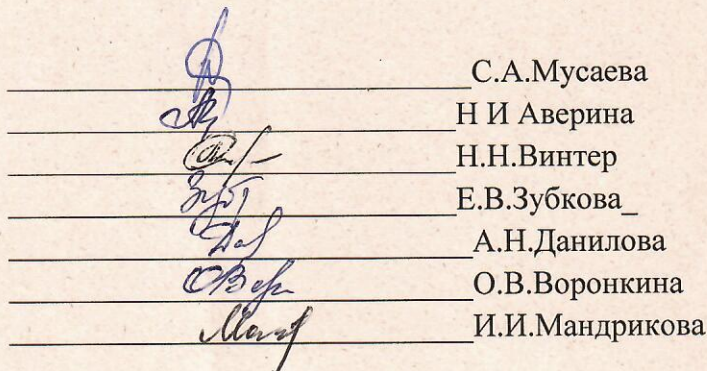 С.А.Мусаева
Н И Аверина
Н.Н.Винтер
Е.В.Зубкова_
А.Н.Данилова
О.В.Воронкина
И.И.Мандрикова